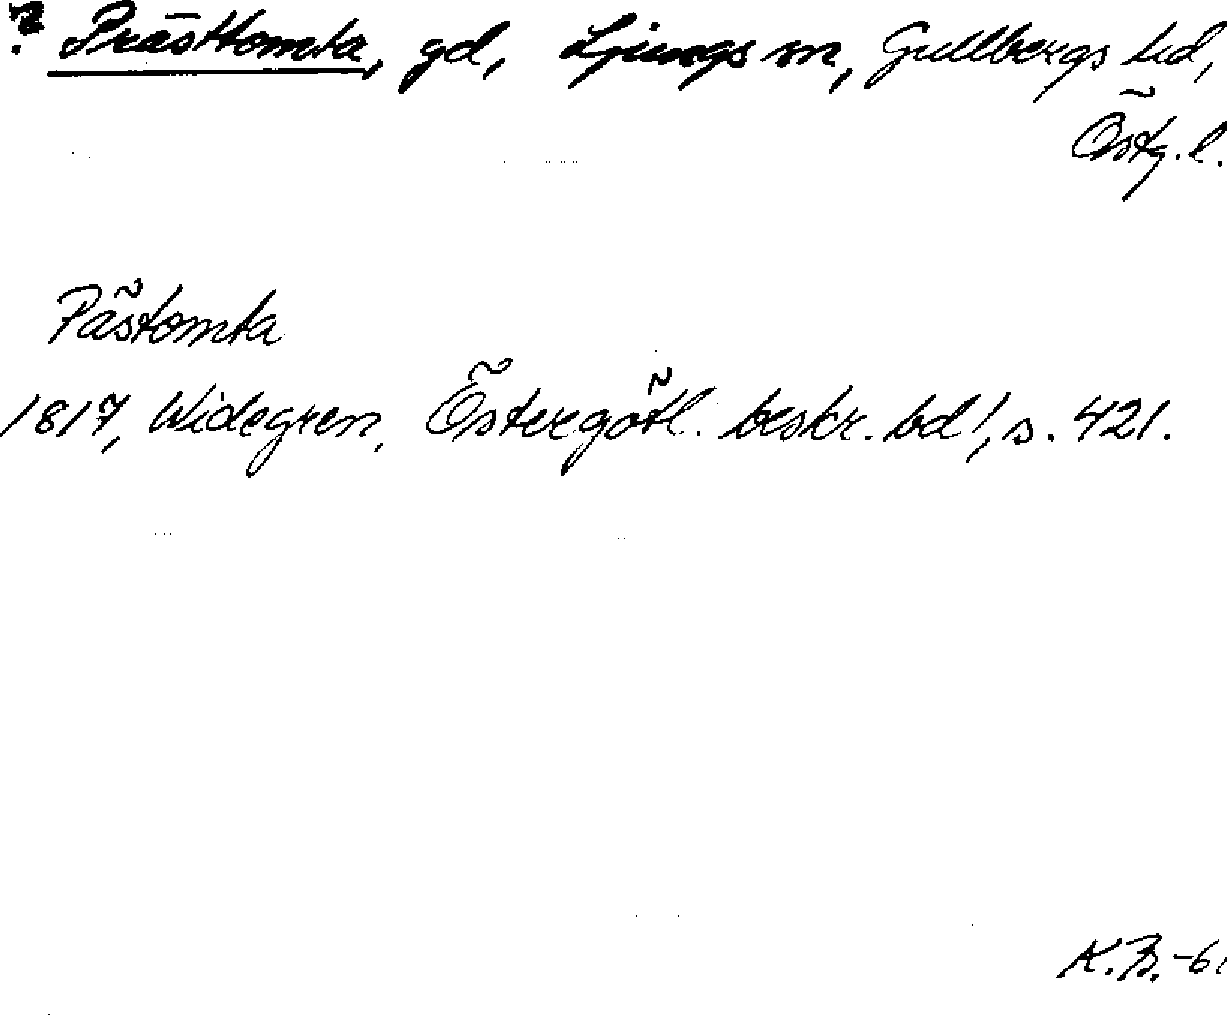 ? Prästtomta, gd, Ljungs sn, Gullbergs hd,
Östg. l.
Pästomta
1817, Widegren, Östergötl. beskr. bd 1, s. 421.
K.B. -61